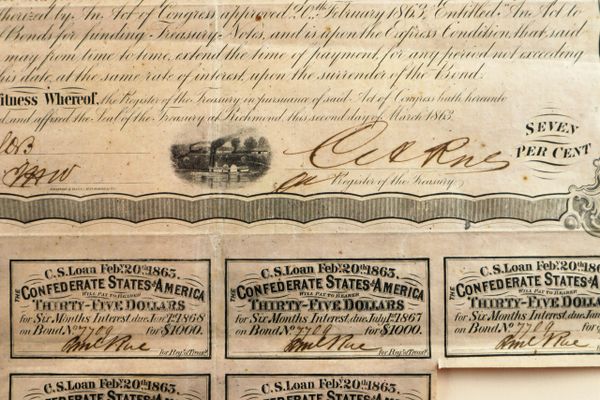 thorized by An Act of Congress approved 20th February 1863, Entitled "An Act to
Bonds for funding Treasury Notes, and is upon the Express Condition, that said
may from time to time, extend the time of payment, for any period not exceeding
his date, at the same rate of interest, upon the surrender of the Bond.
itness Whereof, the Register of the Treasury in pursuance of said Act of Congress hath hereunto
and affixed the Seal of the Treasury at Richmond, this second day of March 1863.
SEVEN
PER CENT
Register of the Treasury.
C.S. Loan Feby. 20th 1863.
THE CONFEDERATE STATES OF AMERICA
WILL PAY TO BEARER
THIRTY-FIVE DOLLARS
for Six Months Interest, due Jany 1st 1868
on Bond No 7709 for $1000.
for Regr. of Treasy.
C.S. Loan Feby. 20th 1863.
THE CONFEDERATE STATES OF AMERICA
WILL PAY TO BEARER
THIRTY-FIVE DOLLARS
for Six Months Interest, due July 1st 1867
on Bond No 7709 for $1000.
for Regr. of Treasy.
C.S. Loan Feby. 20th 186
THE CONFEDERATE STATES OF AM
WILL PAY TO BEARER
THIRTY-FIVE DOLLARS
for Six Months Interest, due Jan
on Bond No 7709 for $1000
C.S. Loan Feby. 20th 1863.
CONFEDERATE STATES OF AMERICA
C.S. Loan Feby. 20th 1863.
CONFEDERATE STATES OF AMERICA